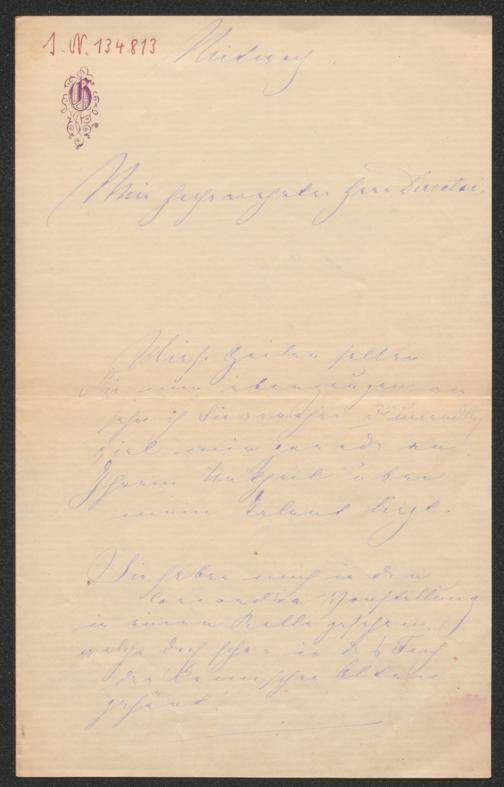 I. N. 134.813
Mittwoch.
G
Mein hochverehrter Herr Director.
Diese Zeilen sollen
Sie nun überzeugen wie
sehr ich Sie verehre u.
viel mir gerade an
Ihrem Urtheil über
mein Talent liegt.
Sie haben mich in der
Concordia Vorstellung
in einer Rolle gesehen,
welche doch schon in das Fach
der komischen Alten
gehört.